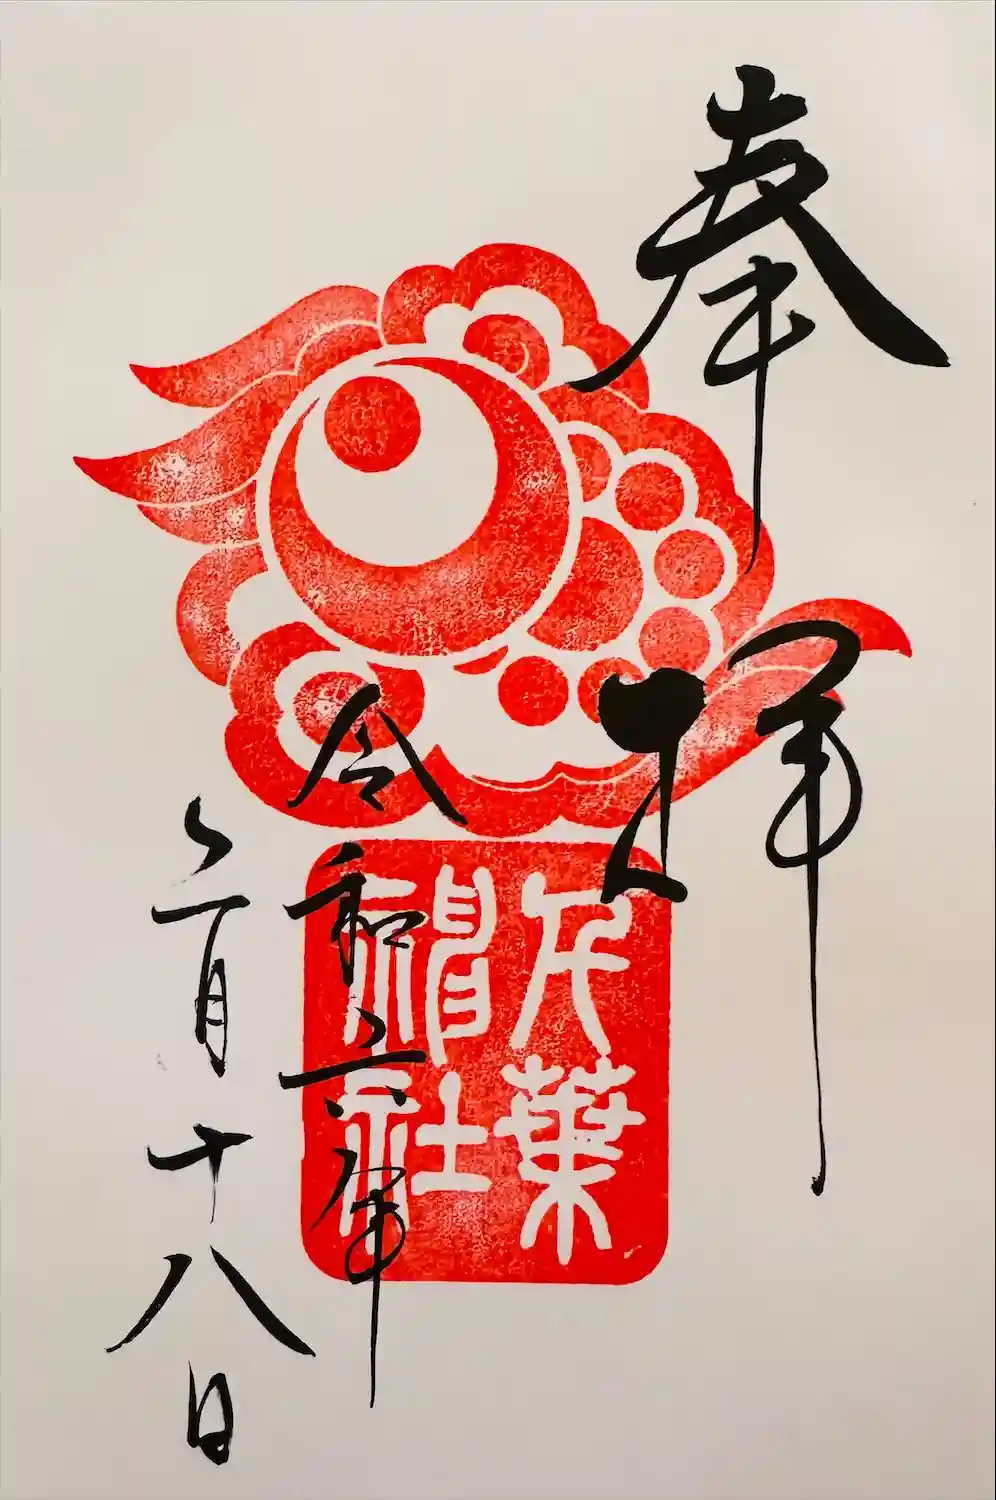 奉拝
千葉
神社
令和六年
三月十八日